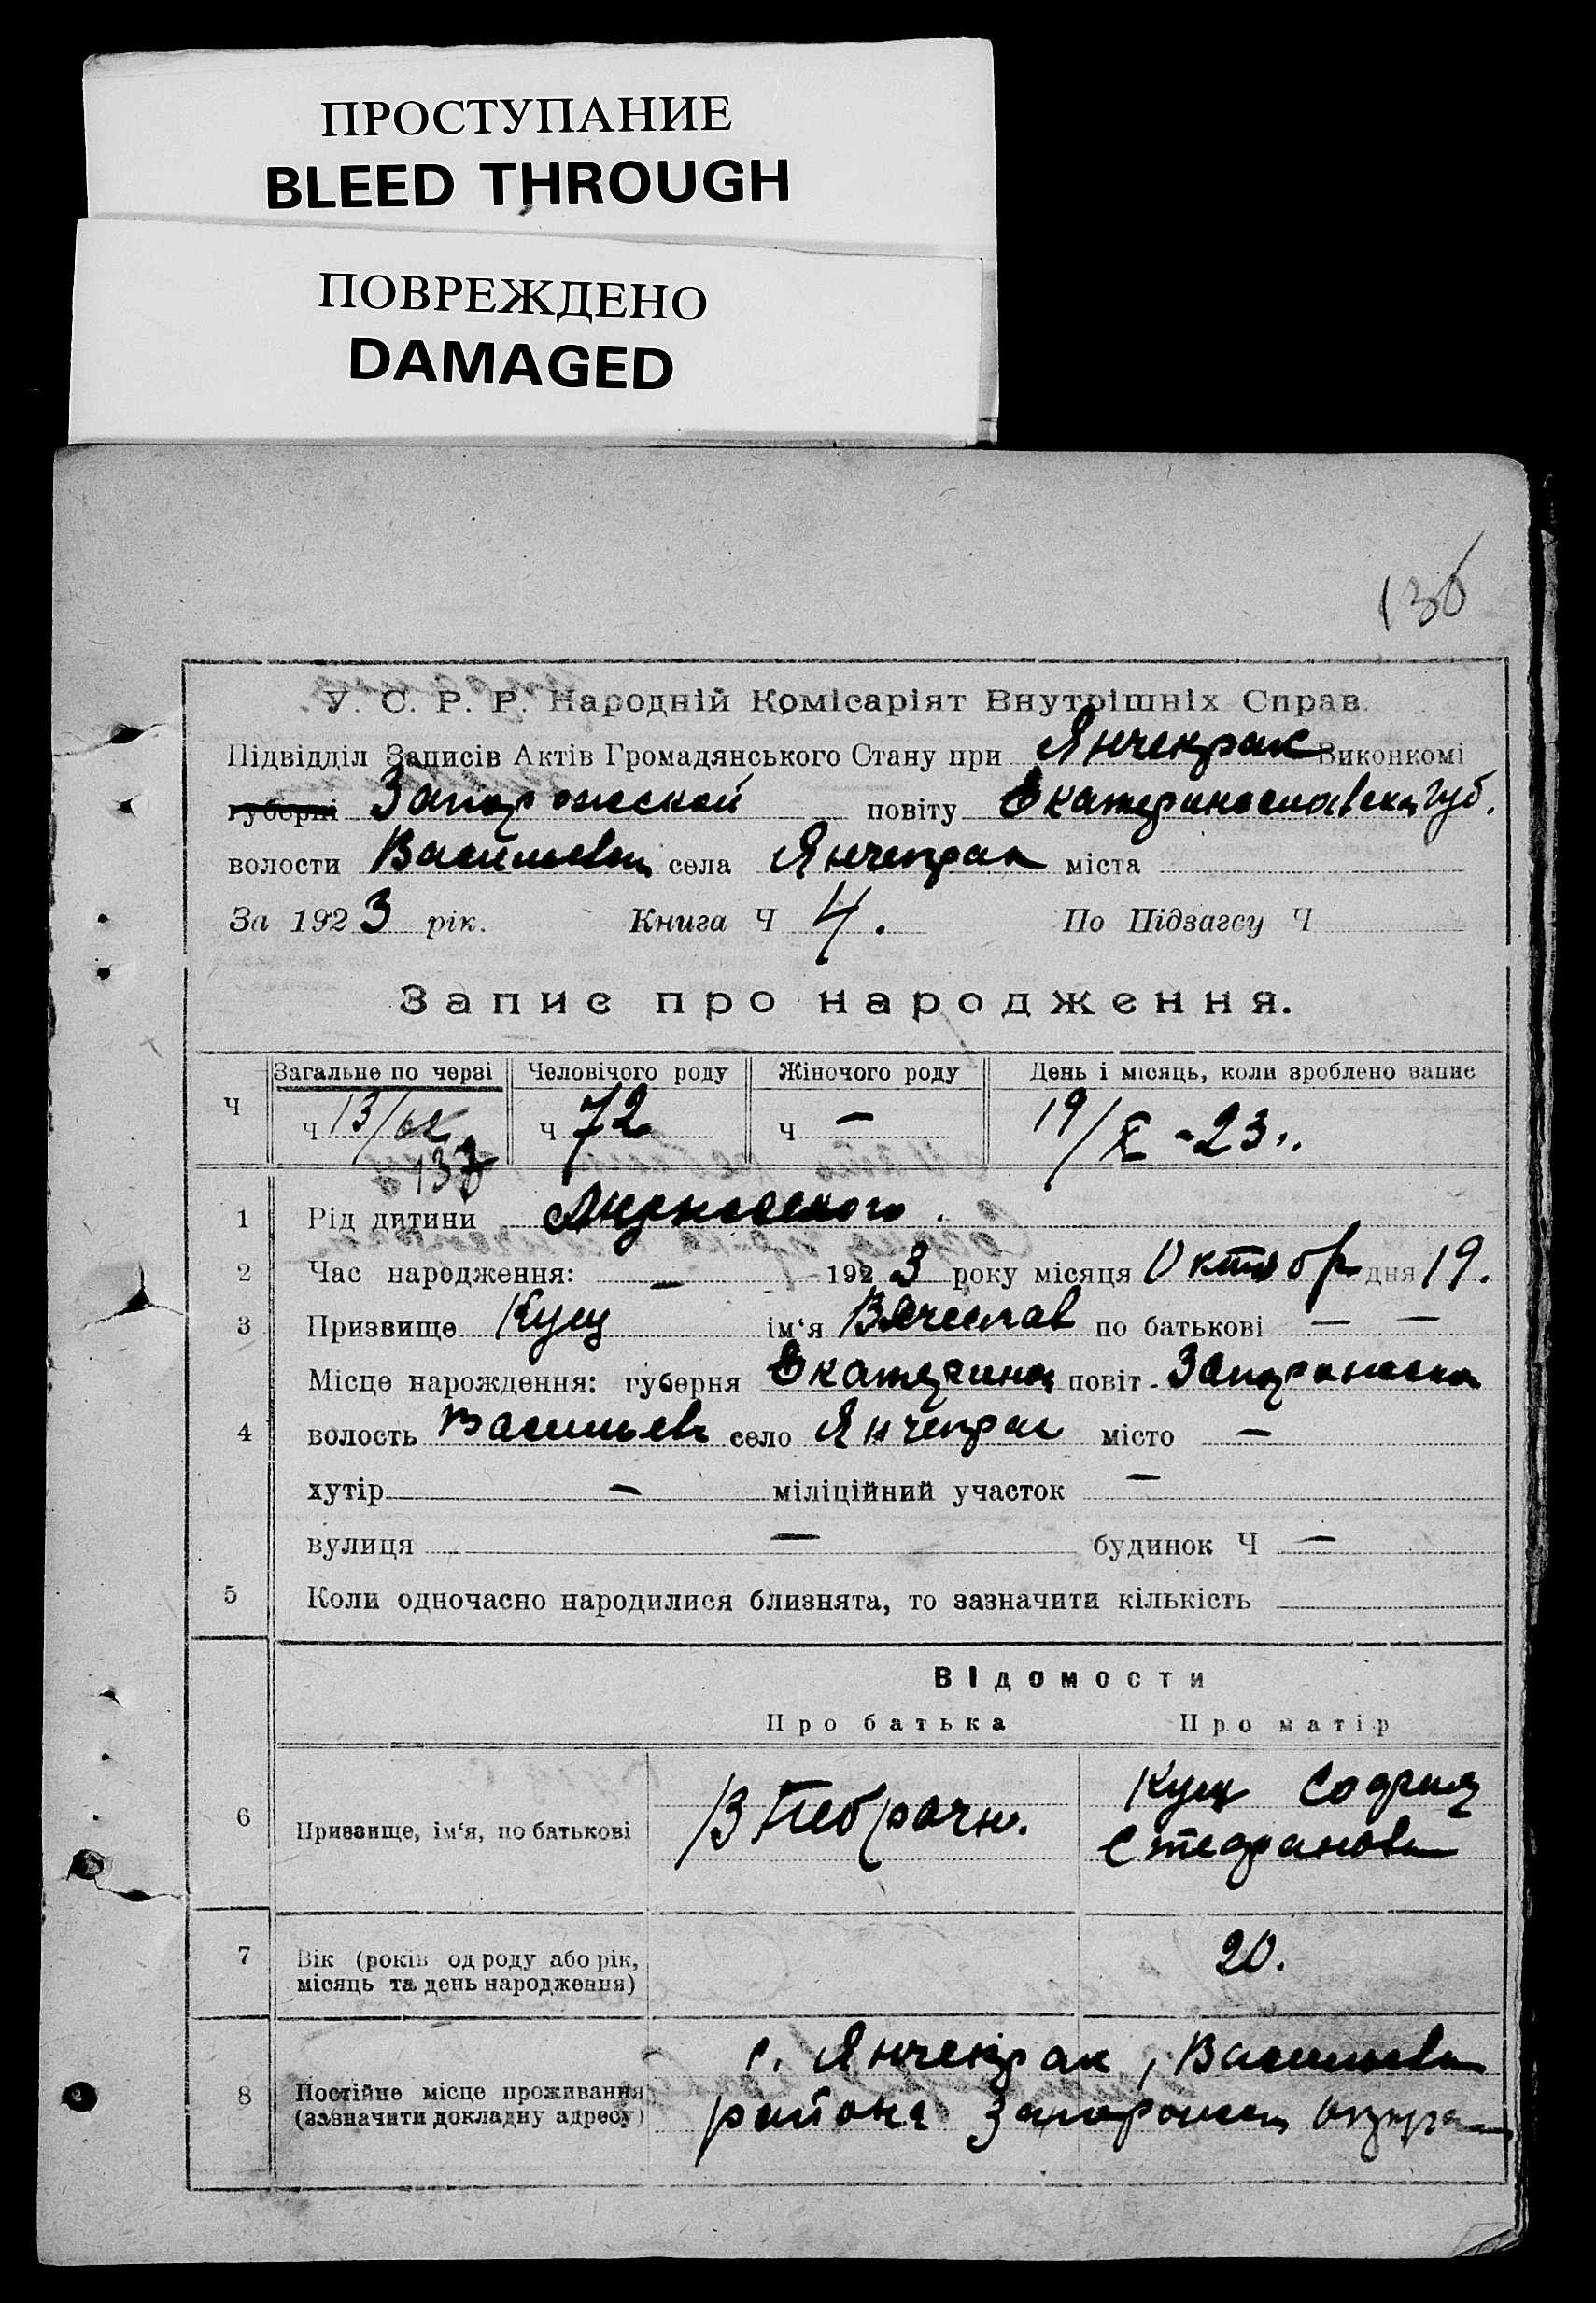 ПРОСТУПАНИЕ
BLEED THROUGH
ПОВРЕЖДЕНО
DAMAGED
136
У. С. Р. Р. Народній Комісаріят Внутрішніх Справ.
Підвідділ Записів Актів Громадянського Стану при Янчекрак Виконкомі
губерні Запорожской повіту Екатеринославск губ.
волости Васильевск села Янчекрак міста
За 1923 рік. Книга Ч 4. По Підзагсу Ч
Запис про народження.
Загальне по черзі Человічого роду Жіночого роду День і місяць, коли зроблено запис
Ч ч ч 72 ч — 19/X -23..
137
1 Рід дитини
2 Час народження: — 1923 року місяця Октябр дня 19.
3 Призвище Кущ ім‘я Вячеслав по батькові — —
Місце нарождення: губерня Екатерин повіт Запорожск
4 волость Васильев село Янчекрак місто —
хутір — міліційний участок —
вулиця — будинок Ч —
5 Коли одночасно народилися близнята, то зазначити кількість
Відомости
Про батька Про матір
6 Призвище, ім‘я, по батькові Кущ София
Стефановн
7 Вік (років од роду або рік, місяць та день народження) 20.
8 Постійне місце проживання (зазначити докладну адресу) с. Янчекрак, Васильевск
района Запорожск округа